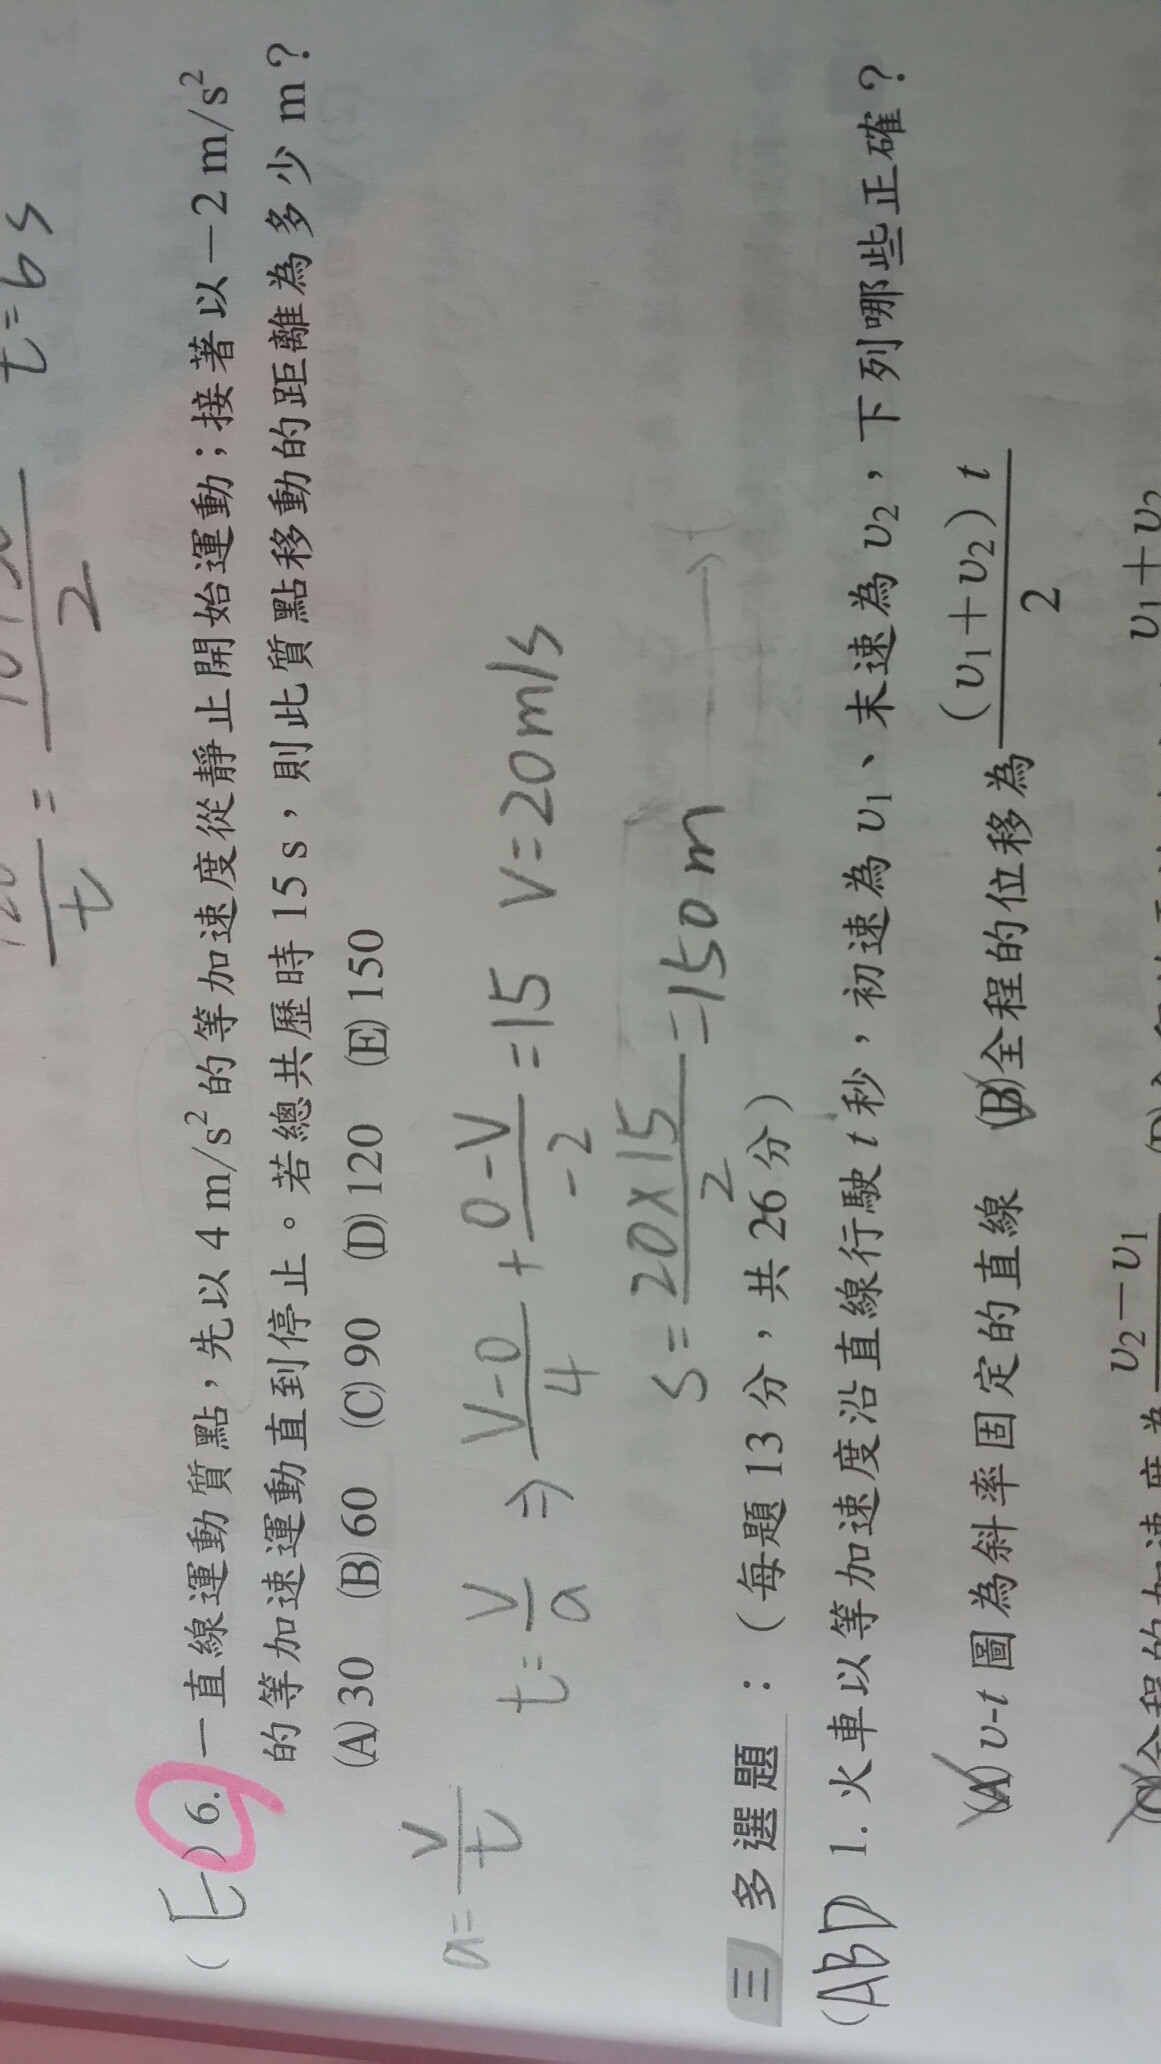 t = 6s
t = 2
(E) 6. 一直線運動質點，先以 4 m/s² 的等加速度從靜止開始運動；接著以－2 m/s²
的等加速運動直到停止。若總共歷時 15 s，則此質點移動的距離為多少 m？
(A) 30 (B) 60 (C) 90 (D) 120 (E) 150
a = v/t t = v/a ⇒ (v-0)/4 + (0-v)/-2 = 15 v = 20 m/s
s = (20×15)/2 = 150 m
三 多選題：（每題 13 分，共 26 分）
(ABD) 1. 火車以等加速度沿直線行駛 t 秒，初速為 υ₁、末速為 υ₂，下列哪些正確？
(A) υ-t 圖為斜率固定的直線 (B) 全程的位移為 (υ₁＋υ₂) t / 2
(C) 全程的加速度為 υ₂－υ₁ υ₁＋υ₂